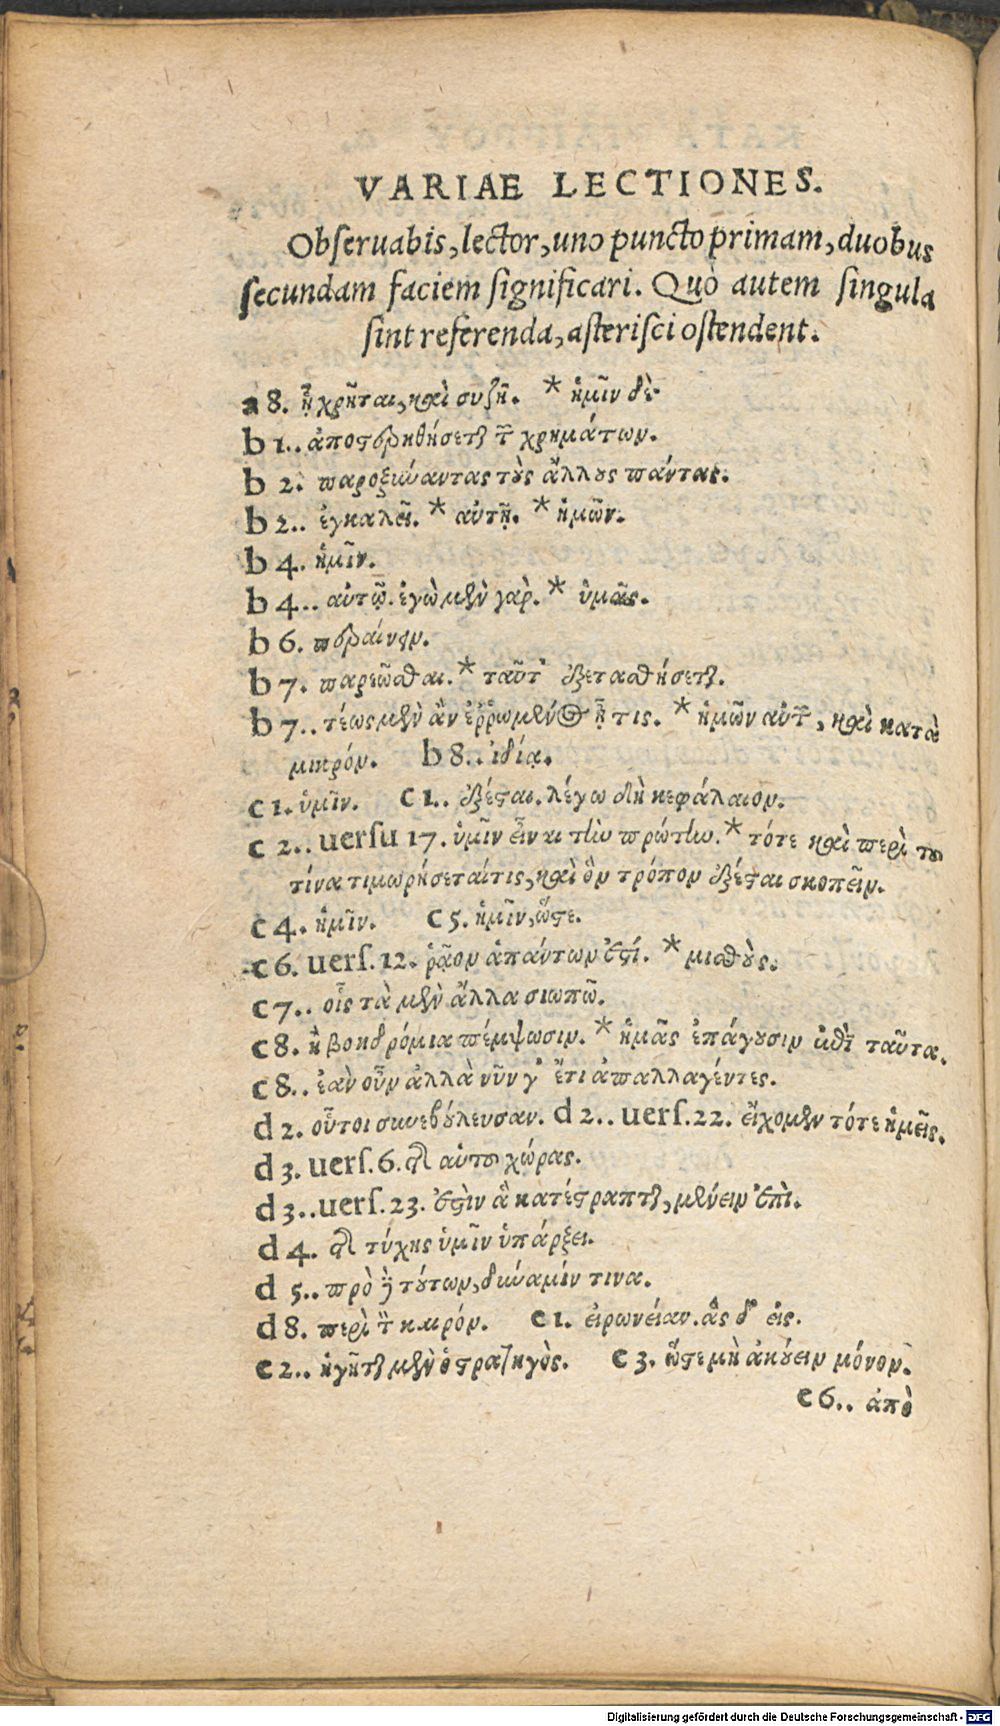 VARIAE LECTIONES.
Obſeruabis, lector, uno puncto primam, duobus
ſecundam faciem ſignificari. Quò autem ſingula
ſint referenda, aſteriſci oſtendent.
a 8. ᾗ χρῆται, καὶ συζῇ. * ἡμῖν δὲ
b 1.. ἀποστερηθήσεται τῶν χρημάτων.
b 2. παροξυώαντας τοὺς ἄλλους πάντας.
b 2.. ἐγκαλεῖ. * αὐτῇ. * ἡμῶν.
b 4. ἡμῖν.
b 4.. αὐτῷ. ἐγὼ μὲν γὰρ. * ὑμᾶς.
b 6. περαίνειν.
b 7. παρεῶσθαι. * ταῦτ' ἐξετασθήσεται.
b 7.. τέως μὲν ἂν ἐῤῥωμένος ᾖ τις. * ἡμῶν αὐτῶν, καὶ κατὰ
μικρόν. b 8.. ἰδίᾳ.
c 1. ὑμῖν. c 1.. ἐξέσται. λέγω δὴ κεφάλαιον.
c 2.. uerſu 17. ὑμῖν εἶναι τὴν πρώτην. * τότε καὶ περὶ τοῦ
τίνα τιμωρήσεταί τις, καὶ ὃν τρόπον ἐξέσται σκοπεῖν.
c 4. ἡμῖν. c 5. ἡμῖν, ὥστε.
c 6. uerſ. 12. ῥᾷον ἁπάντων ἐστί. * μισθούς.
c 7.. οἷς τὰ μὲν ἄλλα σιωπῶ.
c 8. ἢ βοηδρόμια πέμψωσιν. * ἡμᾶς ἐπάγουσιν ἐπὶ ταῦτα.
c 8.. ἐὰν οὖν ἀλλὰ νῦν γ' ἔτι ἀπαλλαγέντες.
d 2. οὗτοι συνεβούλευσαν. d 2.. uerſ. 22. εἴχομεν τότε ἡμεῖς.
d 3. uerſ. 6. τῆς αὐτοῦ χώρας.
d 3.. uerſ. 23. ἐστὶν ἃ κατέστραπται, μένειν ἐπὶ.
d 4. τῆς τύχης ὑμῖν ὑπάρξει.
d 5.. πρὸ τούτων, δύναμίν τινα.
d 8. περὶ τὸν καιρόν. e 1. εἰρωνείαν. ἃς δ' εἰς.
e 2.. ἡγῆται μὲν ὁ στρατηγὸς. e 3. ὥστε μὴ ἀκούειν μόνον.
e 6.. ἀπὸ
Digitalisierung gefördert durch die Deutsche Forschungsgemeinschaft - DFG